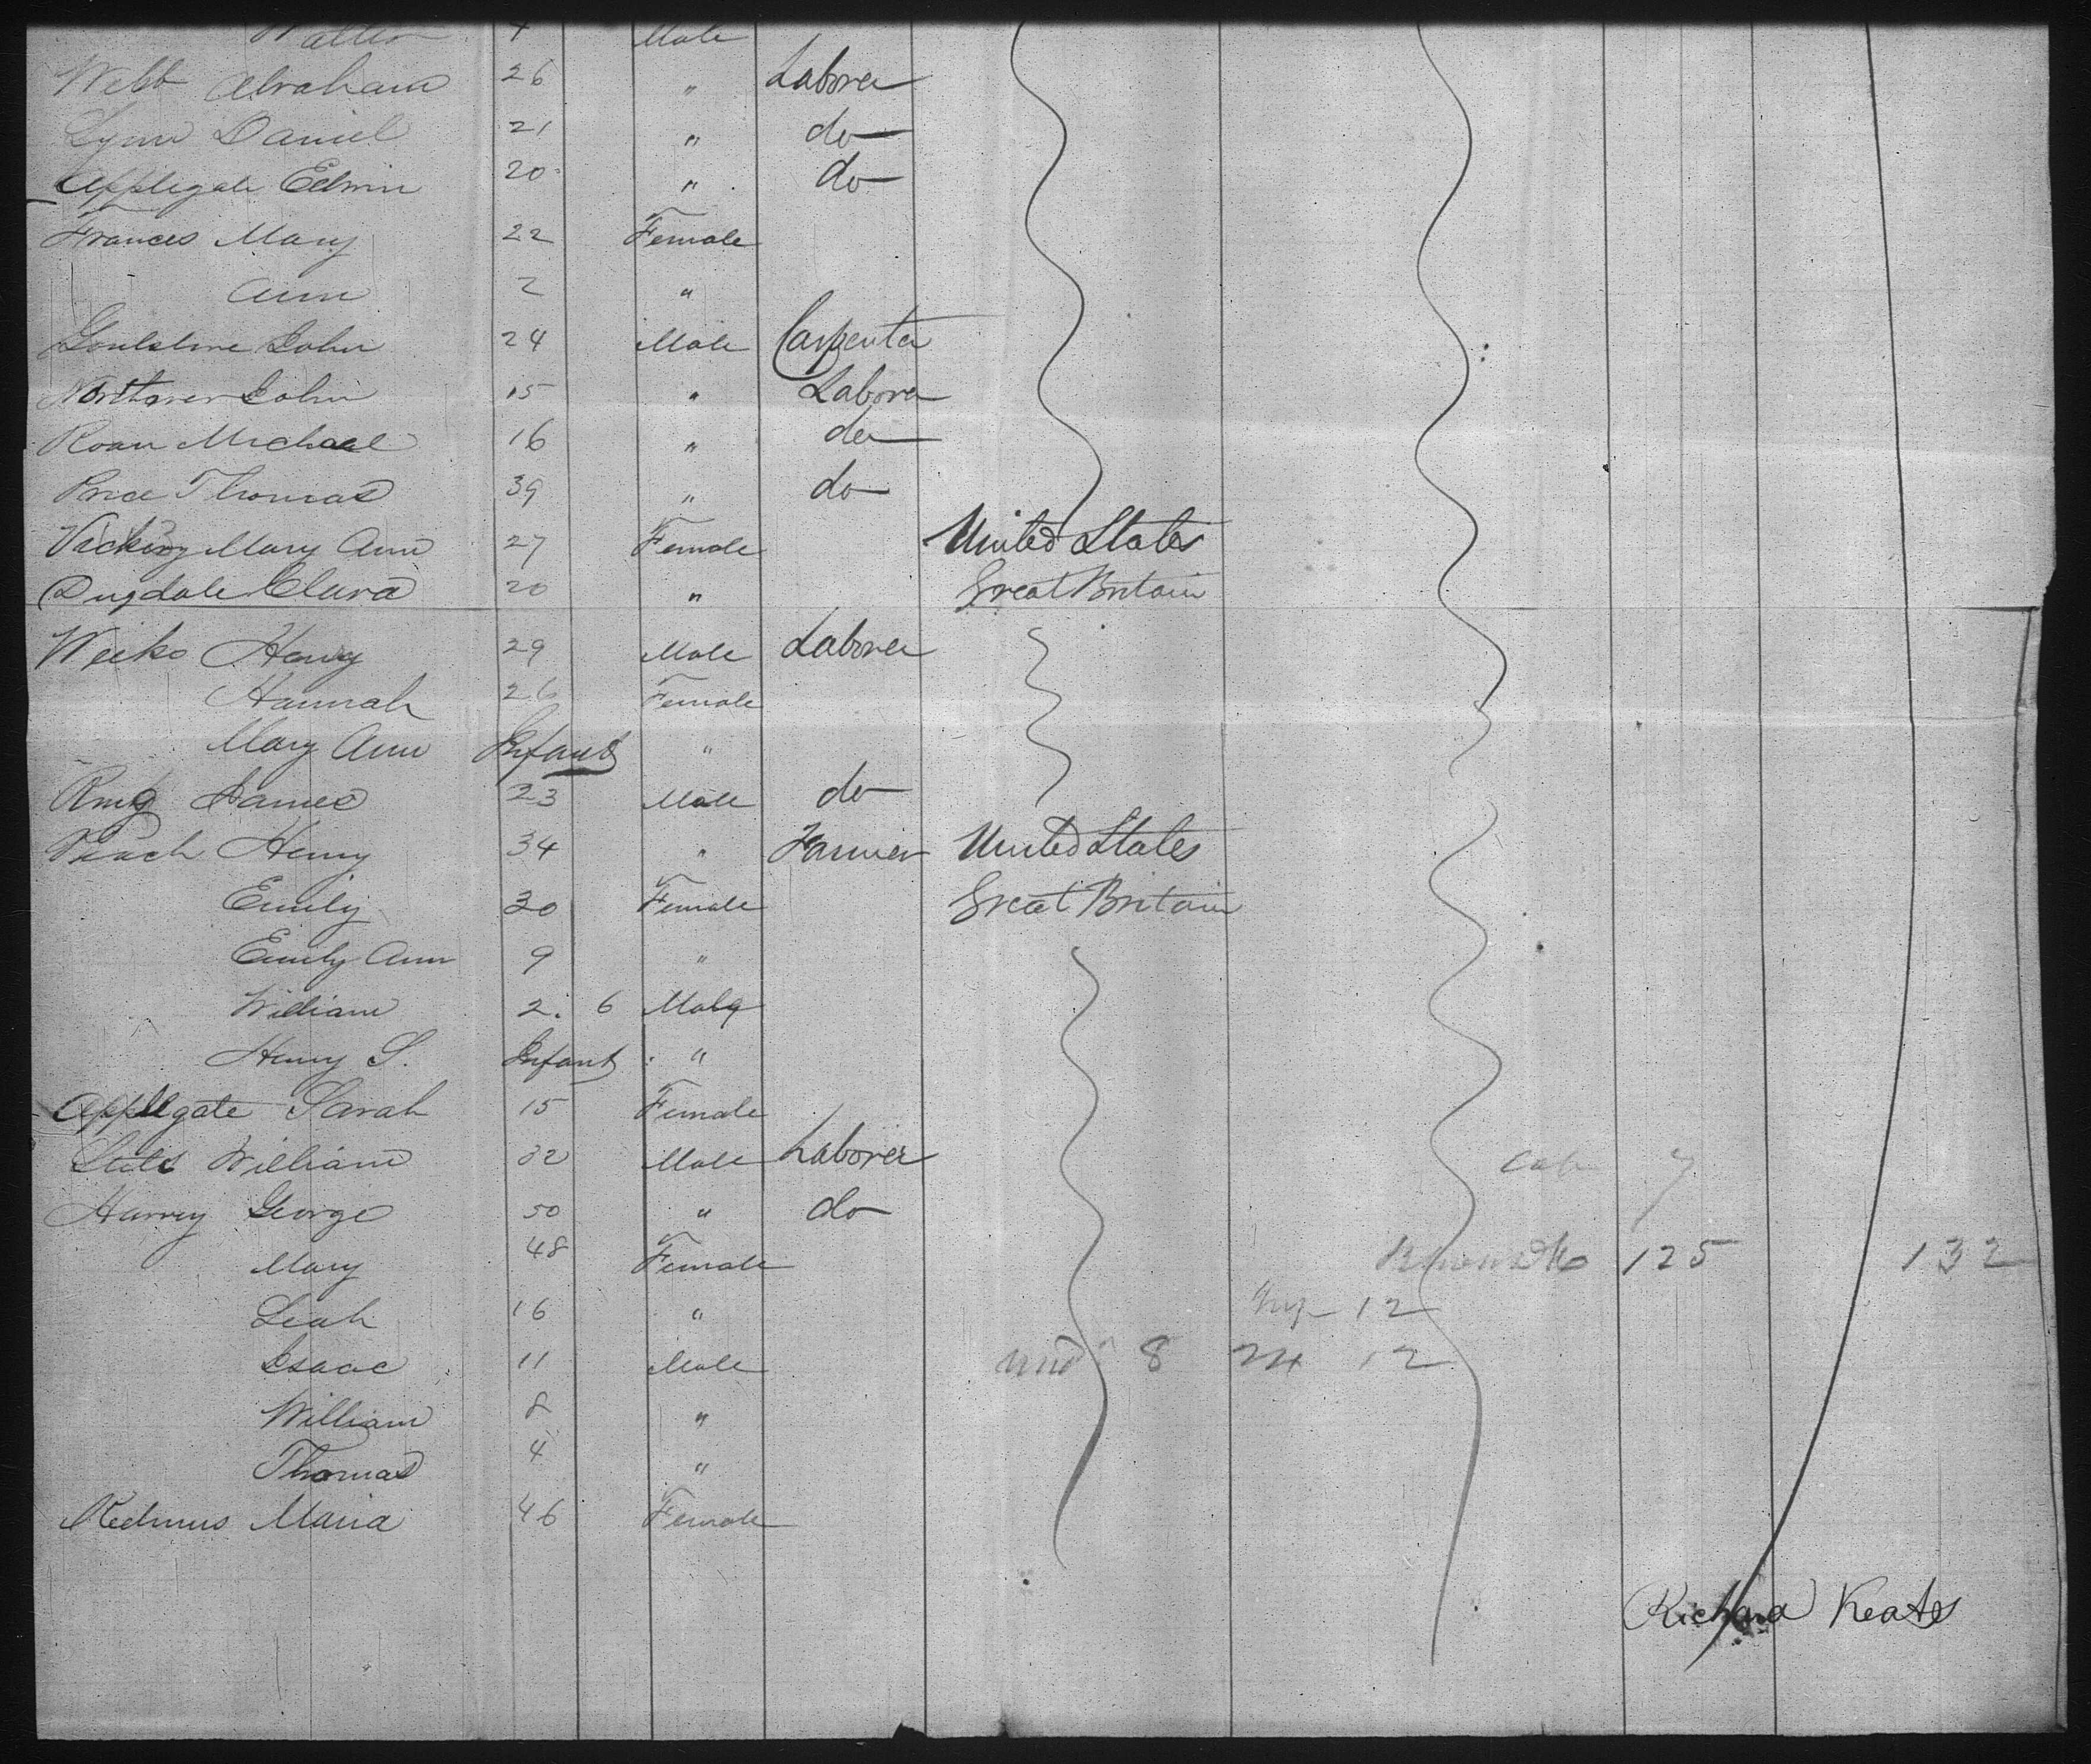 Male
Webb Abraham 26 " Laborer
Lynn Daniel 21 " do
Applegate Edwin 20 " do
Frances Mary 22 Female
Ann 2 "
Goulstone John 24 Male Carpenter
Northover John 15 " Laborer
Roan Michael 16 " do
Price Thomas 39 " do
Mary Ann 27 Female United States
Dugdale Clara 20 " Great Britain
Weeks Henry 29 Male Laborer
Hannah 26 Female
Mary Ann Infant "
Ring James 23 Male do
Veach Henry 34 " Farmer United States
Emily 30 Female Great Britain
Emily Ann 9 "
William 2. 6 Male
Henry S. Infant "
Applegate Sarah 15 Female
William 32 Male Laborer Cab 7
Harvey George 50 " do
Mary 48 Female 125 132
Leah 16 " 12
Isaac 11 Male 8 12
William 8 "
Thomas 4 "
Maria 46 Female
Richard Keates